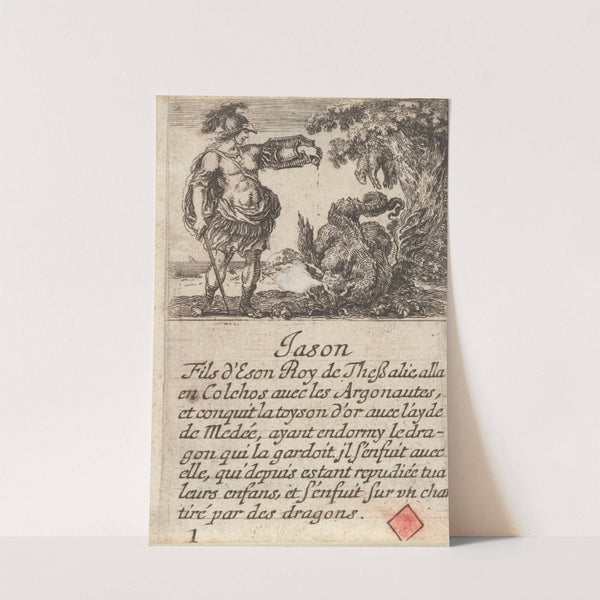 Jason
Fils d'Eson Roy de Theßalie, alla
en Colchos auec les Argonautes,
et conquit la toyson d'or auec l'ayde
de Medée, ayant endormy le dra-
gon qui la gardoit, jl s'enfuit auec
elle, qui depuis estant repudiée tua
leurs enfans, et s'enfuit sur vn char
tiré par des dragons.
1